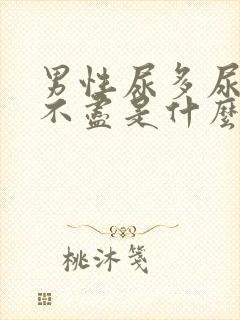 男性尿多尿
不盡是什麼
桃沐箋